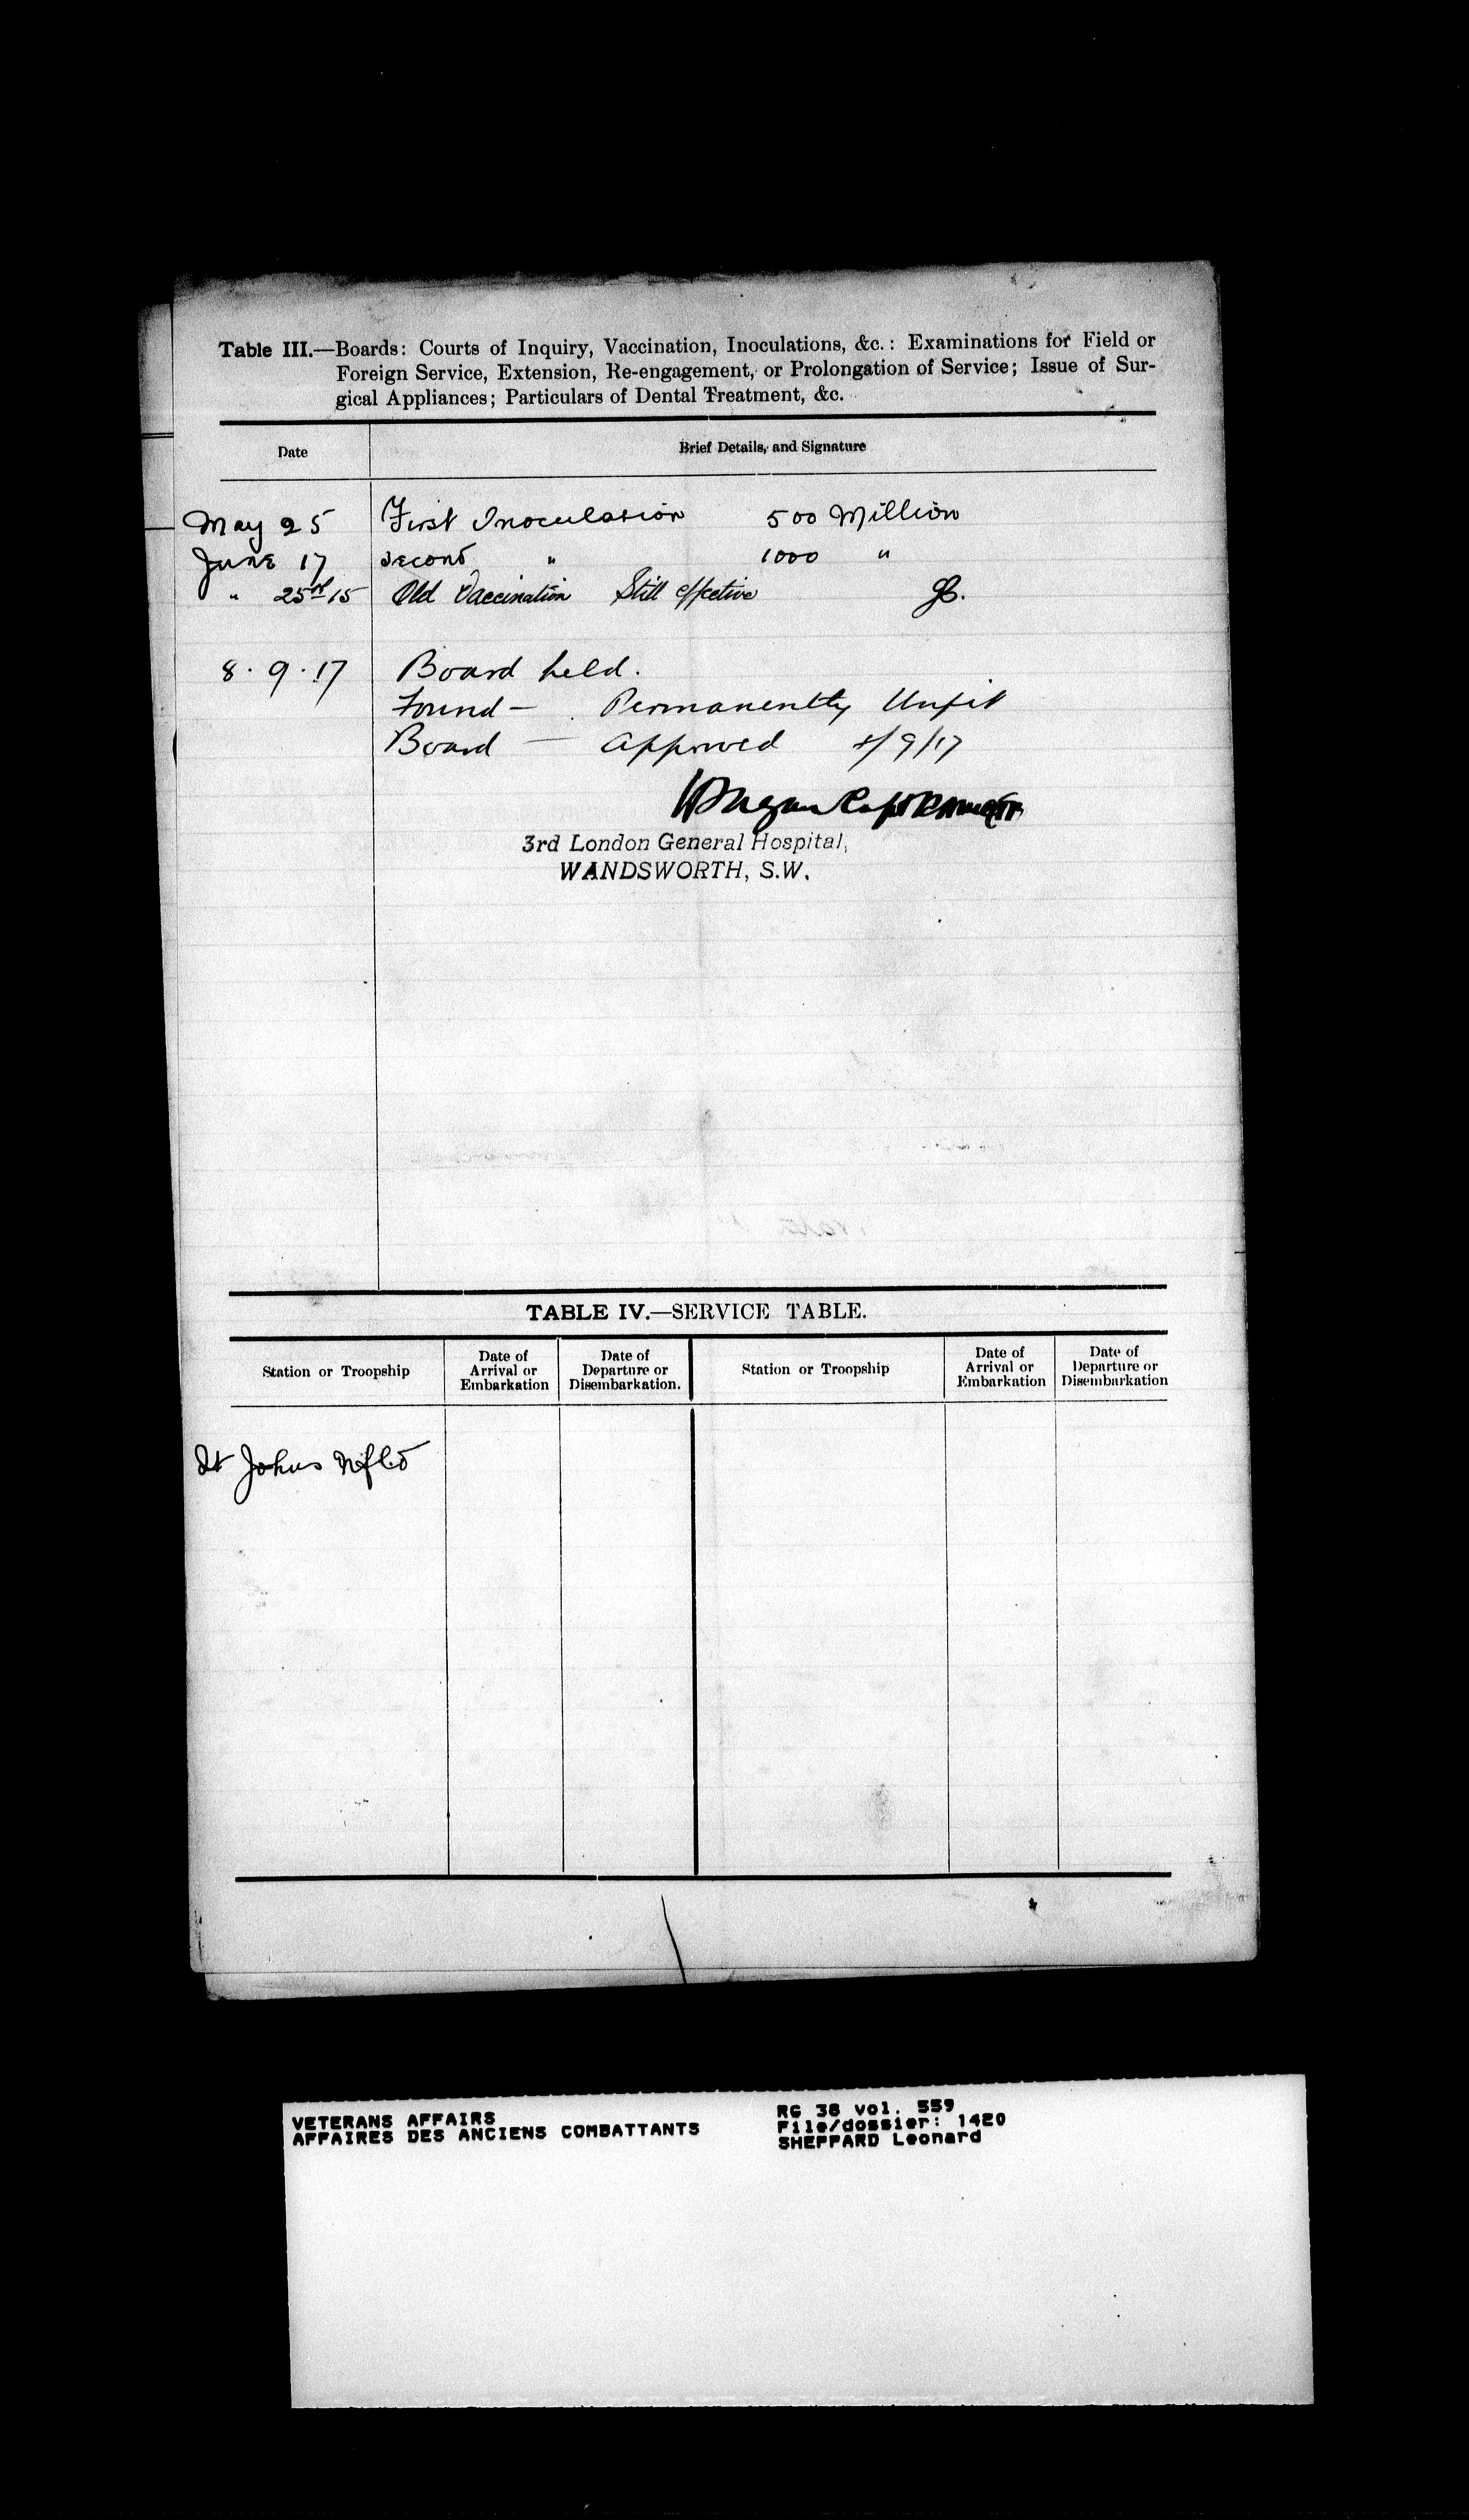 Table III.—Boards: Courts of Inquiry, Vaccination, Inoculations, &c.: Examinations for Field or
Foreign Service, Extension, Re-engagement, or Prolongation of Service; Issue of Sur-
gical Appliances; Particulars of Dental Treatment, &c.
Date Brief Details, and Signature
May 25 First Inoculation 500 Million
June 17 second " 1000 "
" 25th 15 Old Vaccination Still effective
8.9.17 Board held.
Found — Permanently Unfit
Board — approved /9/17
Capt
3rd London General Hospital,
WANDSWORTH, S.W.
TABLE IV.—SERVICE TABLE.
Station or Troopship Date of Arrival or Embarkation Date of Departure or Disembarkation. Station or Troopship Date of Arrival or Embarkation Date of Departure or Disembarkation
St Johns Nfld
VETERANS AFFAIRS
AFFAIRES DES ANCIENS COMBATTANTS
RG 38 vol. 559
File/dossier: 1420
SHEPPARD Leonard